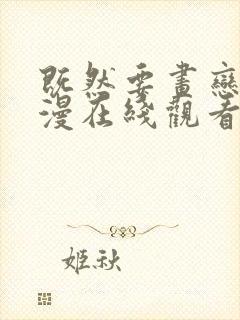 既然要畫戀
漫在綫觀看
姬秋